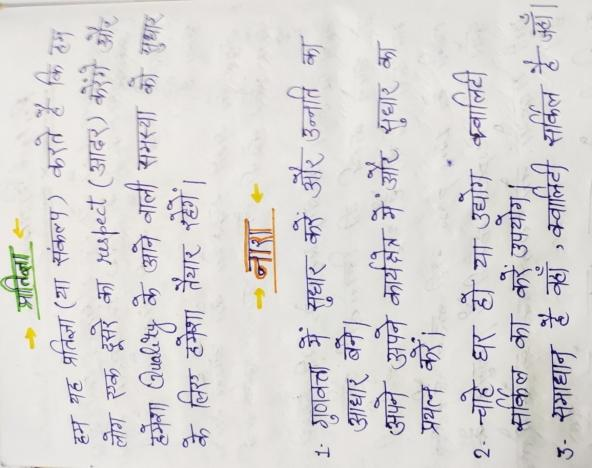 प्रतिज्ञा
हम यह प्रतिज्ञा (या संकल्प) करते है कि हम
लोग एक दूसरे का respect (आदर) करेंगे और
हमेशा Quality के आने वाली समस्या को सुधार
के लिए हमेशा तैयार रहेगें।
नारा
1- गुणवत्ता में सुधार करें और उन्नति का
आधार बने।
अपने अपने कार्यक्षेत्र में और सुधार का
प्रयत्न करें।
2- चाहे घर हो या उद्योग क्वालिटी
सर्किल का करें उपयोग।
3- समाधान है वहाँ, क्वालिटी सर्किल है जहाँ।